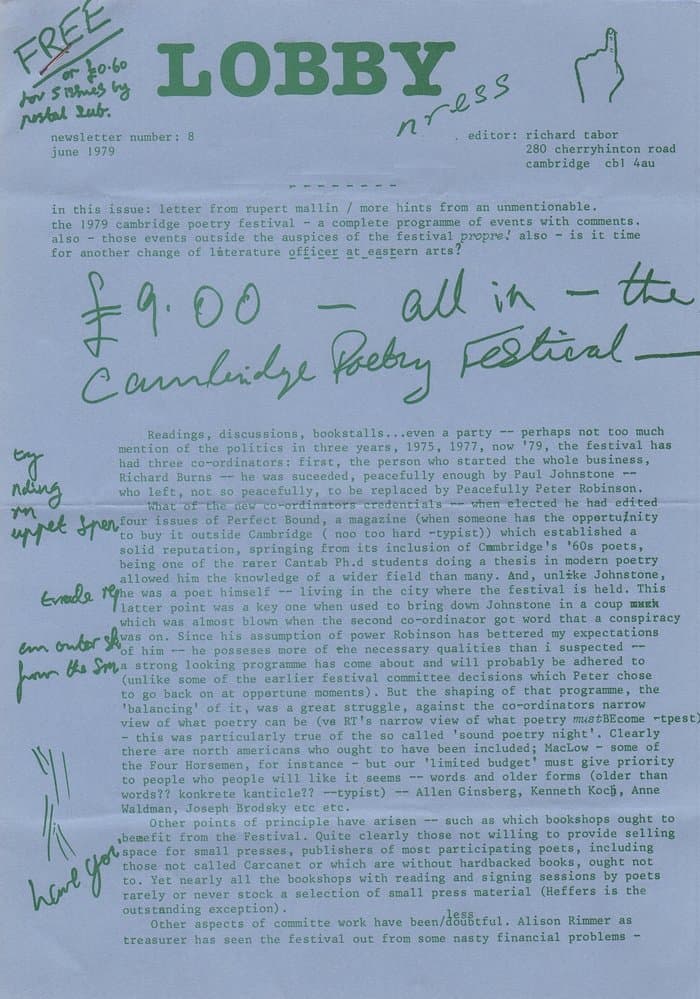 FREE
or £0.60
for 5 issues by
postal sub.
LOBBY
press
newsletter number: 8
june 1979
editor: richard tabor
280 cherryhinton road
cambridge cb1 4au
in this issue: letter from rupert mallin / more hints from an unmentionable.
the 1979 cambridge poetry festival - a complete programme of events with comments.
also - those events outside the auspices of the festival propre! also - is it time
for another change of literature officer at eastern arts?
£9.00 — all in — the
Cambridge Poetry Festival —
Readings, discussions, bookstalls...even a party -- perhaps not too much
mention of the politics in three years, 1975, 1977, now '79, the festival has
had three co-ordinators: first, the person who started the whole business,
Richard Burns -- he was suceeded, peacefully enough by Paul Johnstone --
who left, not so peacefully, to be replaced by Peacefully Peter Robinson.
What of the new co-ordinators credentials -- when elected he had edited
four issues of Perfect Bound, a magazine (when someone has the opportunity
to buy it outside Cambridge ( noo too hard -typist)) which established a
solid reputation, springing from its inclusion of Cmmbridge's '60s poets,
being one of the rarer Cantab Ph.d students doing a thesis in modern poetry
allowed him the knowledge of a wider field than many. And, unlike Johnstone,
he was a poet himself -- living in the city where the festival is held. This
latter point was a key one when used to bring down Johnstone in a coup
which was almost blown when the second co-ordinator got word that a conspiracy
was on. Since his assumption of power Robinson has bettered my expectations
of him -- he posseses more of the necessary qualities than i suspected --
a strong looking programme has come about and will probably be adhered to
(unlike some of the earlier festival committee decisions which Peter chose
to go back on at opportune moments). But the shaping of that programme, the
'balancing' of it, was a great struggle, against the co-ordinators narrow
view of what poetry can be (vs RT's narrow view of what poetry must BEcome -tpest)
- this was particularly true of the so called 'sound poetry night'. Clearly
there are north americans who ought to have been included; MacLow - some of
the Four Horsemen, for instance - but our 'limited budget' must give priority
to people who people will like it seems -- words and older forms (older than
words?? konkrete kanticle?? --typist) -- Allen Ginsberg, Kenneth Koch, Anne
Waldman, Joseph Brodsky etc etc.
Other points of principle have arisen -- such as which bookshops ought to
benefit from the Festival. Quite clearly those not willing to provide selling
space for small presses, publishers of most participating poets, including
those not called Carcanet or which are without hardbacked books, ought not
to. Yet nearly all the bookshops with reading and signing sessions by poets
rarely or never stock a selection of small press material (Heffers is the
outstanding exception).
Other aspects of committe work have been/doubtful. Alison Rimmer as
less
treasurer has seen the festival out from some nasty financial problems -
nding
from the
have you